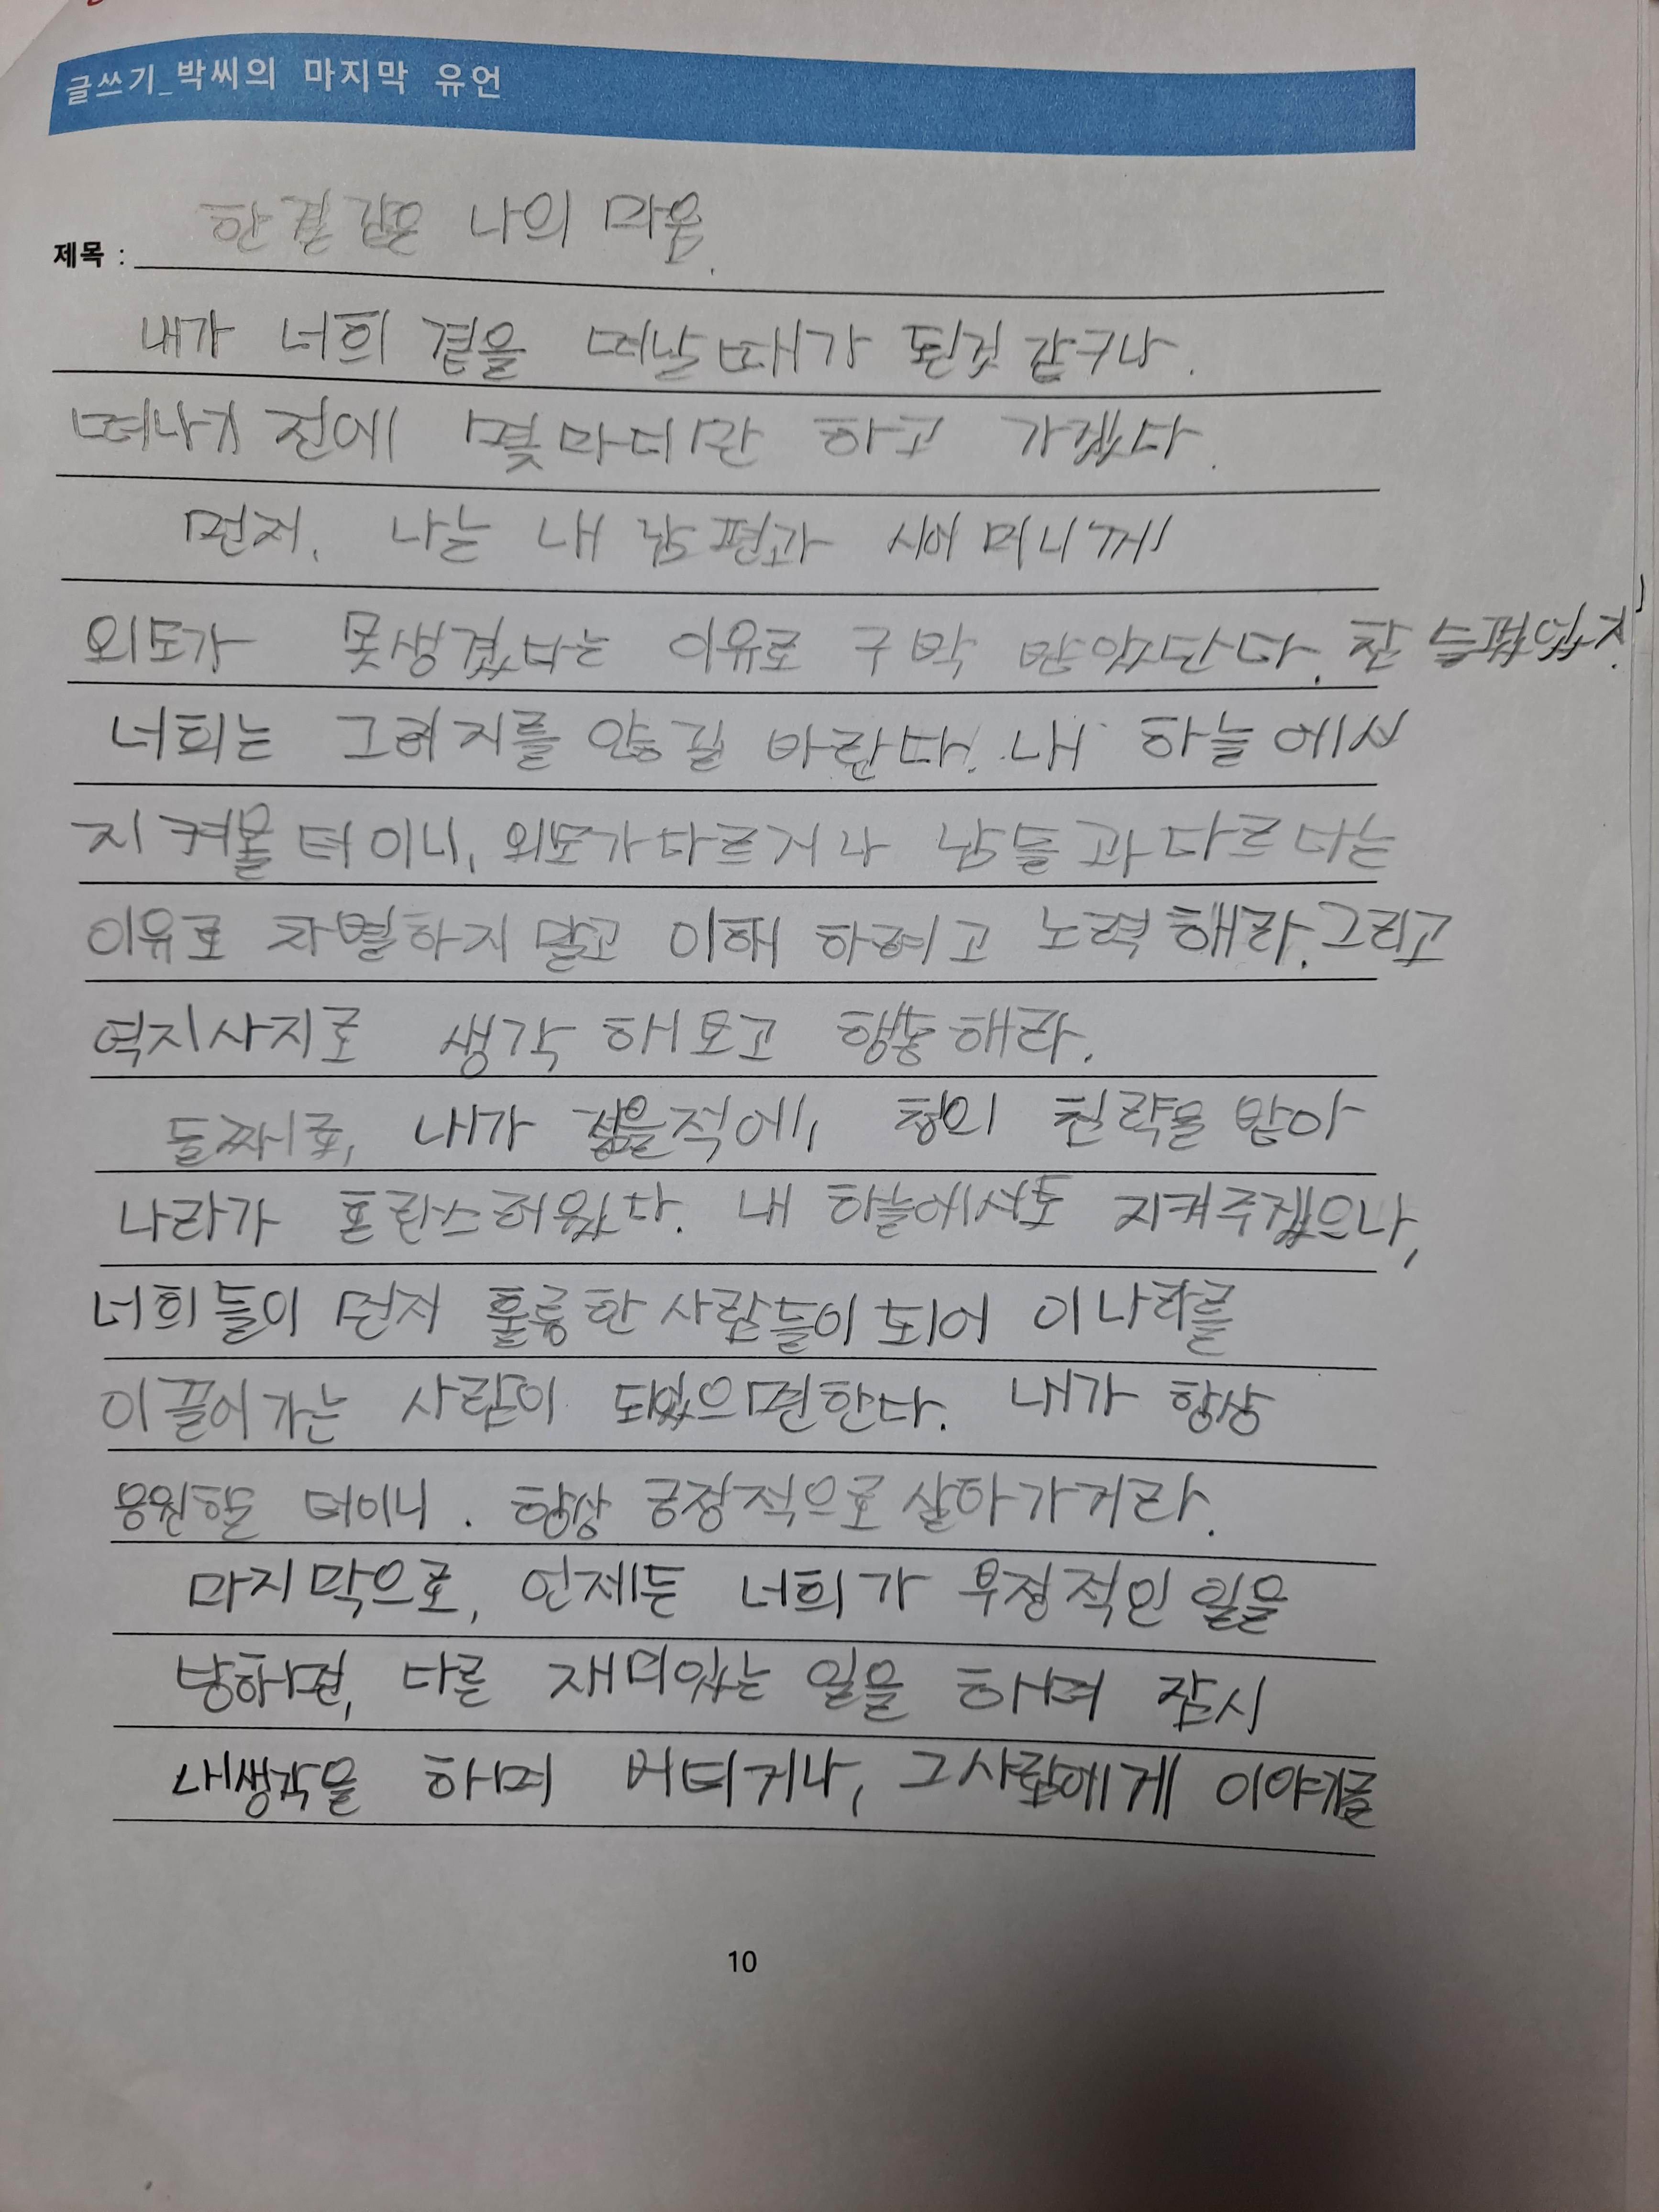 글쓰기_박씨의 마지막 유언
제목 : 한결같은 나의 마음.
내가 너희 곁을 떠날때가 된것 같구나.
떠나기 전에 몇마디만 하고 가겠다.
먼저, 나는 내 남편과 시어머니께
외모가 못생겼다는 이유로 구박 받았단다. 참 슬펐었지.
너희는 그러지를 않길 바란다. 내 하늘에서
지켜볼 터이니, 외모가다르거나 남들과다르다는
이유로 차별하지말고 이해 하려고 노력해라. 그리고
역지사지로 생각 해보고 행동해라.
둘째로, 내가 젊을적에, 청의 친략을 받아
나라가 혼란스러웠다. 내 하늘에서도 지켜주겠으나,
너희들이 먼저 훌륭한사람들이되어 이나라를
이끌어가는 사람이 되었으면한다. 내가 항상
응원할 터이니. 항상 긍정적으로살아가거라.
마지막으로, 언제든 너희가 부정적인 일을
당하면, 다른 재미있는 일을 하며 잠시
내생각을 하며 버티거나, 그사람에게 이야기를
10